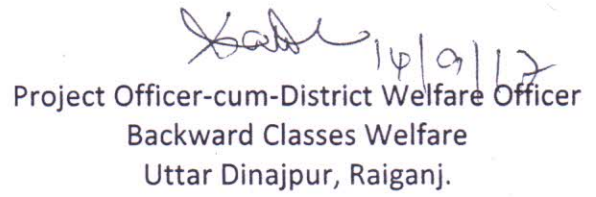 14/9/17
Project Officer-cum-District Welfare Officer
Backward Classes Welfare
Uttar Dinajpur, Raiganj.